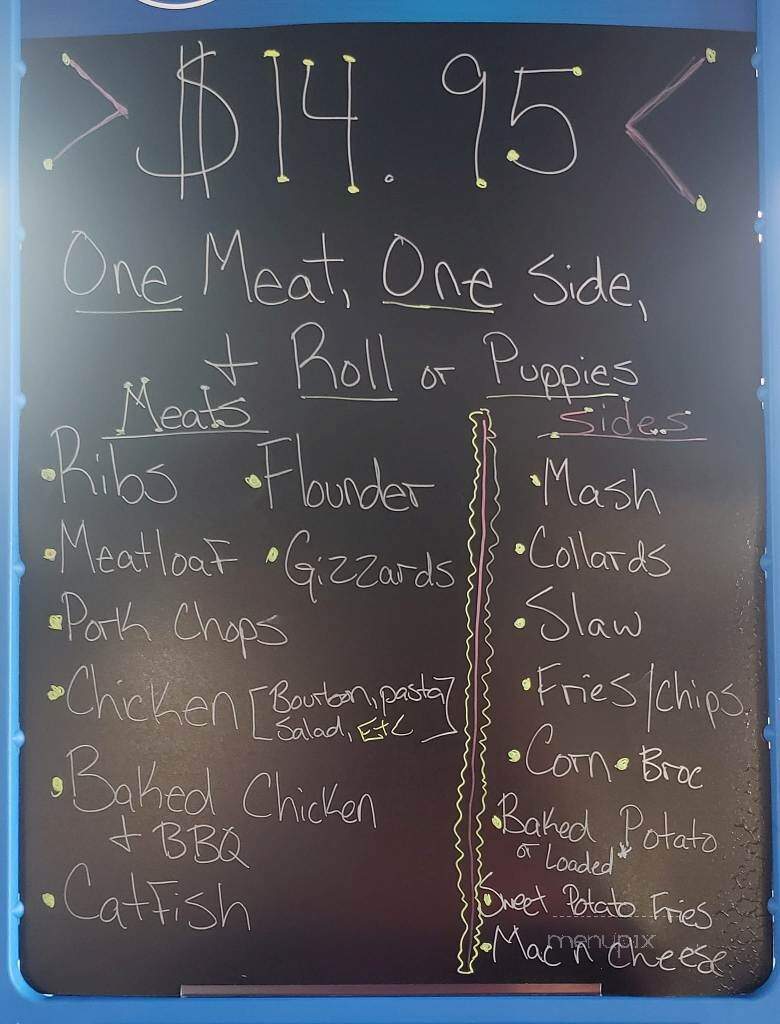 > $14.95 <
One Meat, One Side,
+ Roll or Puppies
Meats
• Ribs • Flounder
• Meatloaf • Gizzards
• Pork Chops
• Chicken [Bourbon, pasta
Salad, Etc]
• Baked Chicken
+ BBQ
• Catfish
Sides
• Mash
• Collards
• Slaw
• Fries/Chips
• Corn • Broc
• Baked Potato
or Loaded*
• Sweet Potato Fries
• Mac n Cheese
menupix